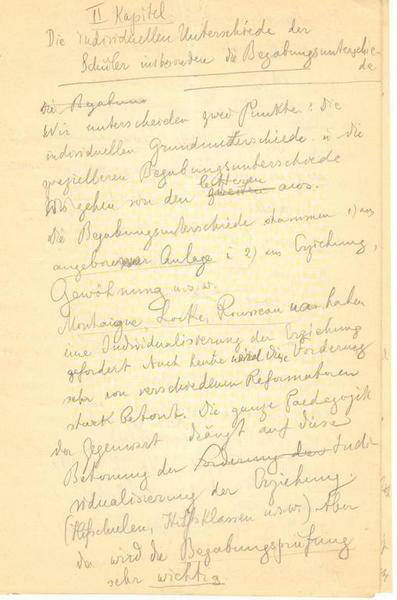 II Kapitel
Die individuellen Unterschiede der
Schüler insbesonders die Begabungsunterschie-
de
Die Begabung
Wir unterscheiden zwei Punkte: die
individuellen Grundunterschiede u. die
spezielleren Begabungsunterschiede
Wir gehen von den letzteren aus.
Die Begabungsunterschiede stammen 1) aus
angeborener Anlage u 2) aus Erziehung,
Gewöhnung u.s.w.
Montaigne, Locke, Rousseau haben
eine Individualisierung der Erziehung
gefordert Auch heute wird diese Forderung
sehr von verschiedenen Reformatoren
stark betont. Die ganze Paedagogik
der Gegenwart drängt auf diese
Betonung der Forderung der Indi-
vidualisierung der Erziehung.
(Hilfsklassen u.s.w.) Aber
da wird die Begabungsprüfung
sehr wichtig